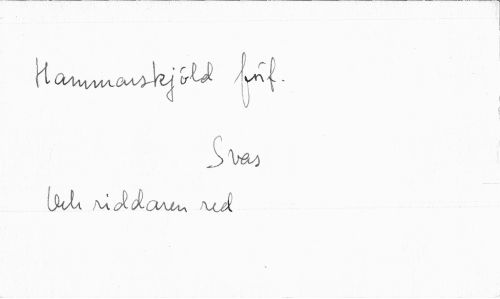 Hammarskjöld förf.
Svas
Och riddaren red